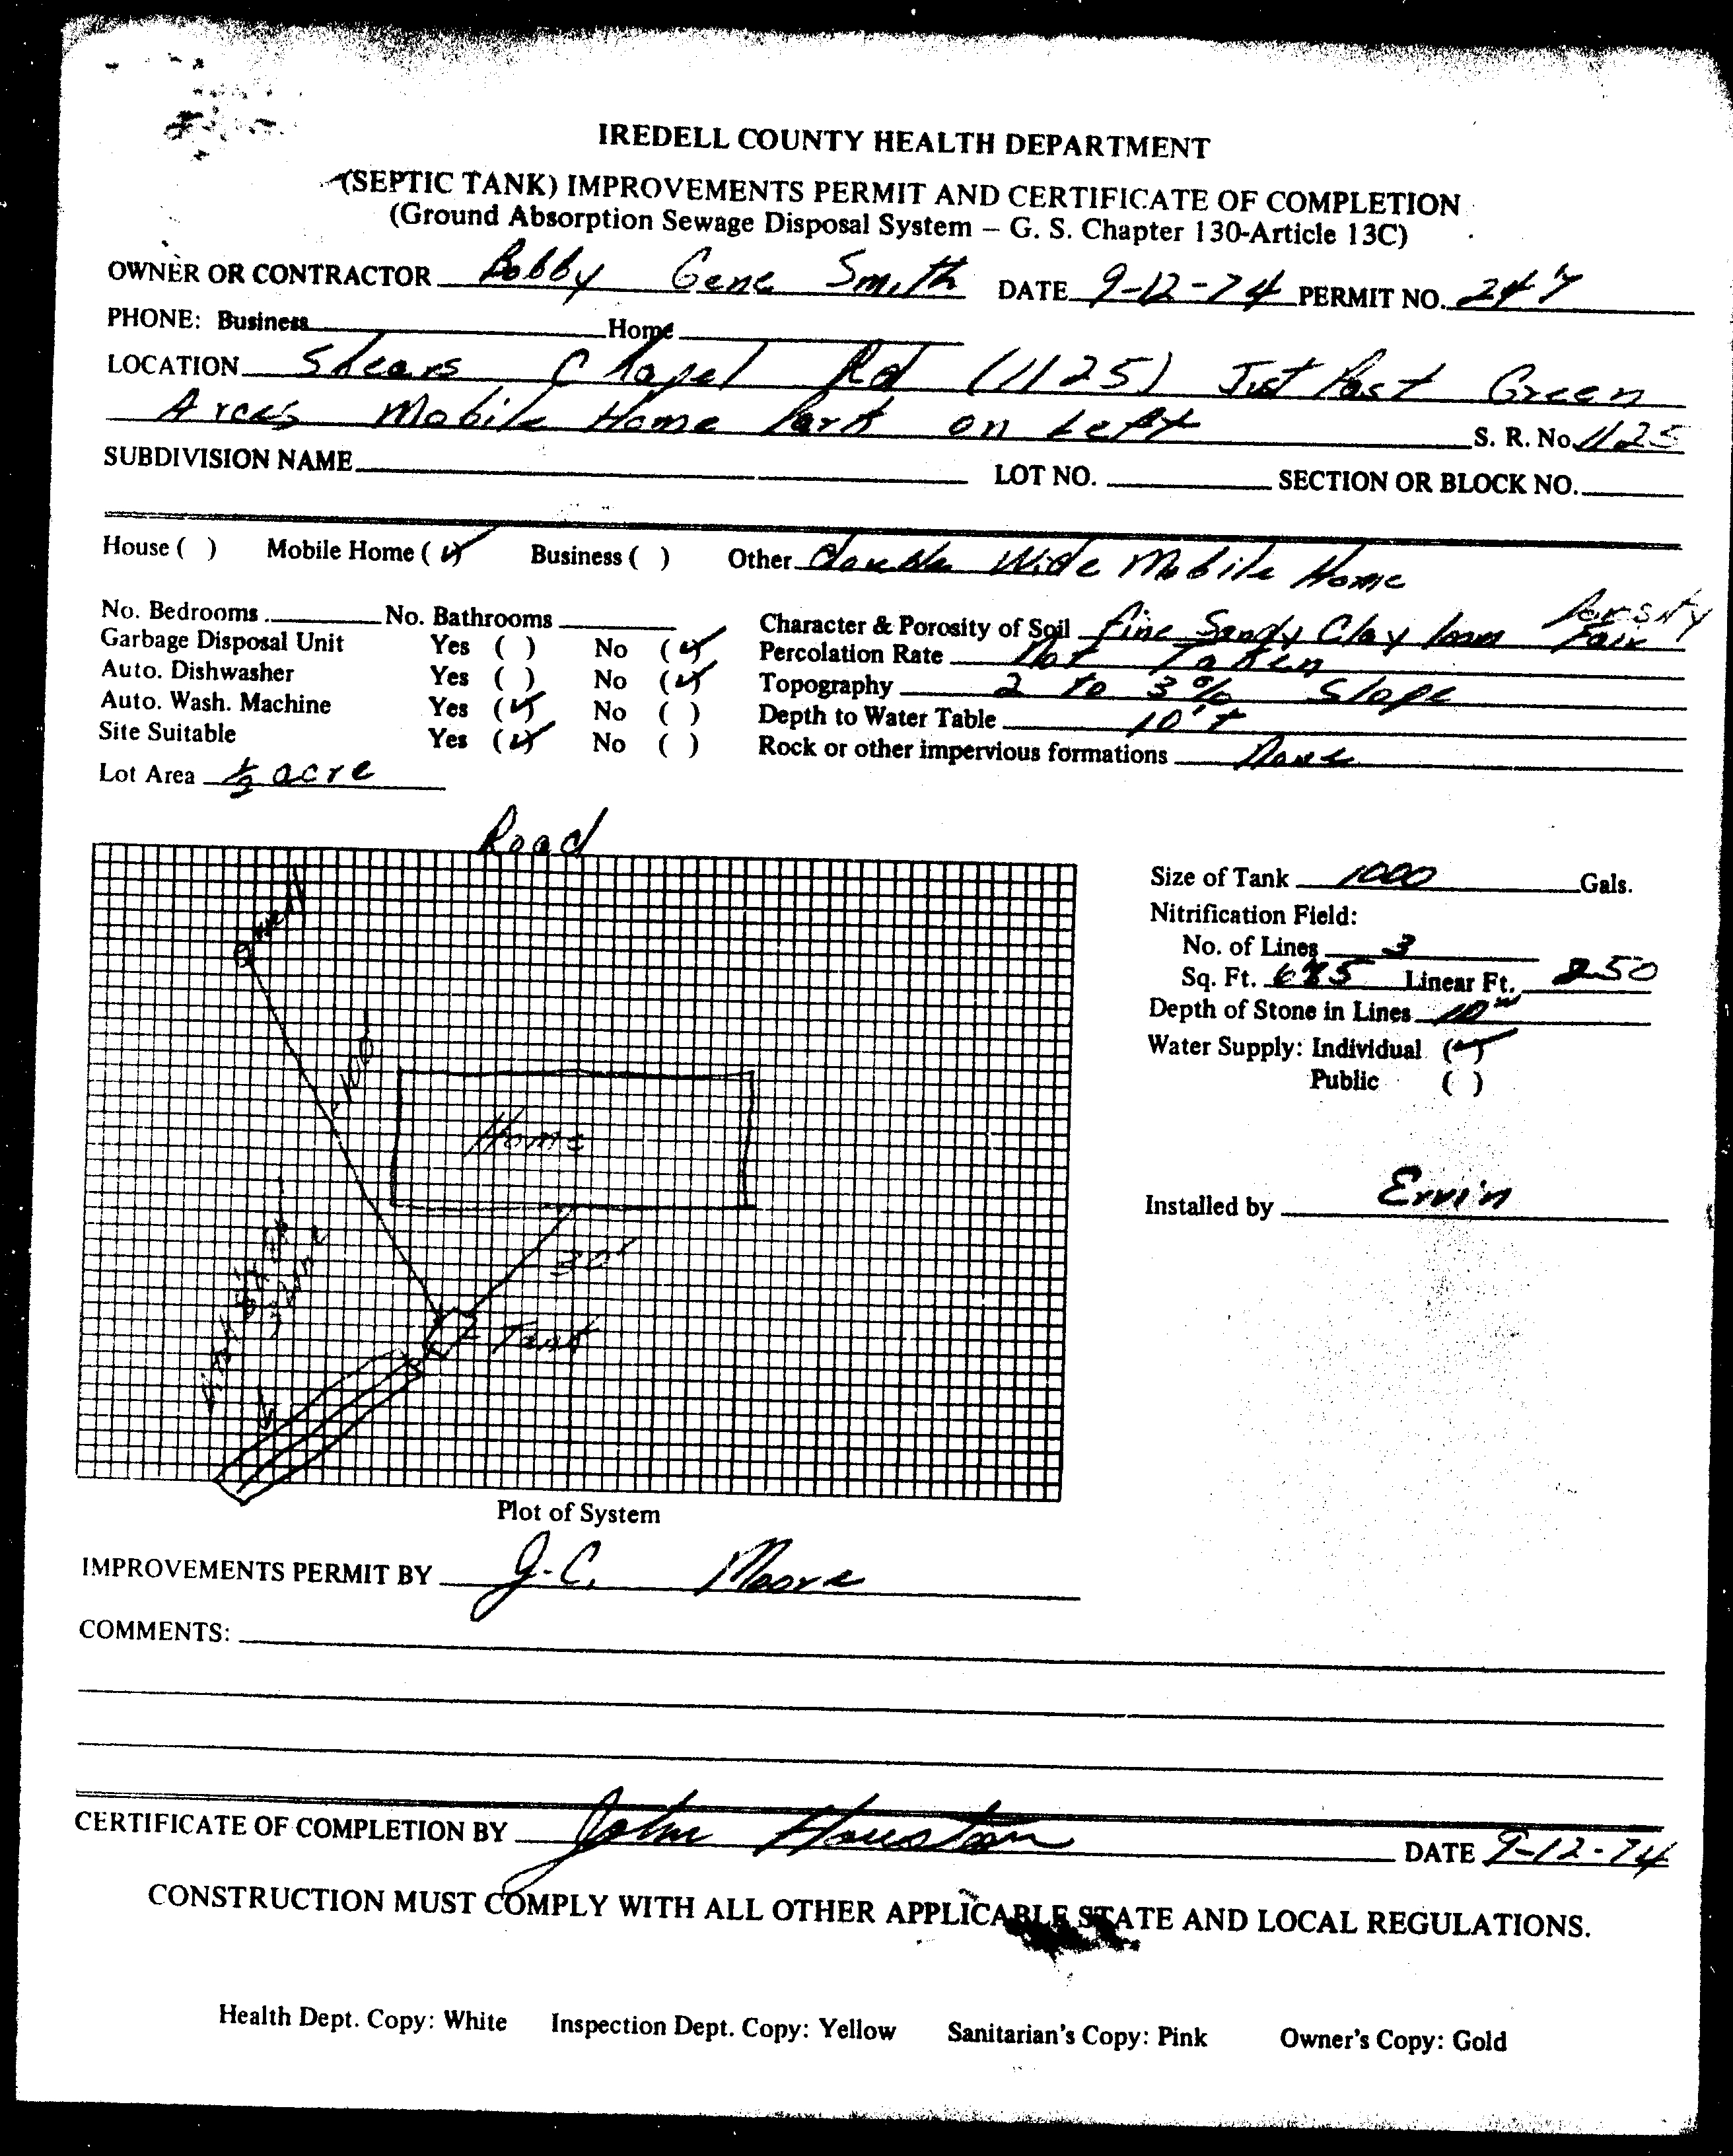 IREDELL COUNTY HEALTH DEPARTMENT
(SEPTIC TANK) IMPROVEMENTS PERMIT AND CERTIFICATE OF COMPLETION
(Ground Absorption Sewage Disposal System – G. S. Chapter 130-Article 13C)
OWNER OR CONTRACTOR Bobby Gene Smith DATE 9-12-74 PERMIT NO. 247
PHONE: Business Home
LOCATION Shears Chapel Rd (1125) Just Past Green
Acres Mobile Home Park on Left S. R. No. 1125
SUBDIVISION NAME LOT NO. SECTION OR BLOCK NO.
House ( ) Mobile Home (✓) Business ( ) Other Double Wide Mobile Home
No. Bedrooms No. Bathrooms Character & Porosity of Soil fine Sandy Clay loam Porsity Fair
Garbage Disposal Unit Yes ( ) No (✓) Percolation Rate Not Taken
Auto. Dishwasher Yes ( ) No (✓) Topography 2 to 3% Slope
Auto. Wash. Machine Yes (✓) No ( ) Depth to Water Table 10'+
Site Suitable Yes (✓) No ( ) Rock or other impervious formations None
Lot Area 1/2 acre
Road
Size of Tank 1000 Gals.
well
Nitrification Field:
No. of Lines 3
Sq. Ft. Linear Ft. 250
Depth of Stone in Lines 10"
Water Supply: Individual (✓)
Public ( )
Home
Installed by Ervin
30'
Tank
Plot of System
IMPROVEMENTS PERMIT BY J.C. Moore
COMMENTS:
CERTIFICATE OF COMPLETION BY John Houston DATE 9-12-74
CONSTRUCTION MUST COMPLY WITH ALL OTHER APPLICABLE STATE AND LOCAL REGULATIONS.
Health Dept. Copy: White Inspection Dept. Copy: Yellow Sanitarian's Copy: Pink Owner's Copy: Gold